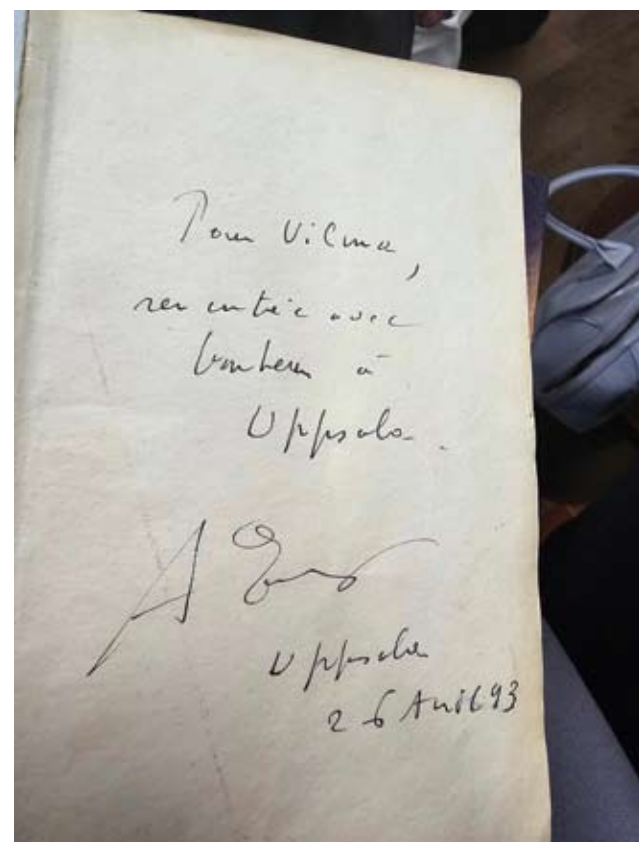 Pour Vilma,
rencontrée avec
bonheur à
Uppsala.
A
Uppsala
26 Avril 93